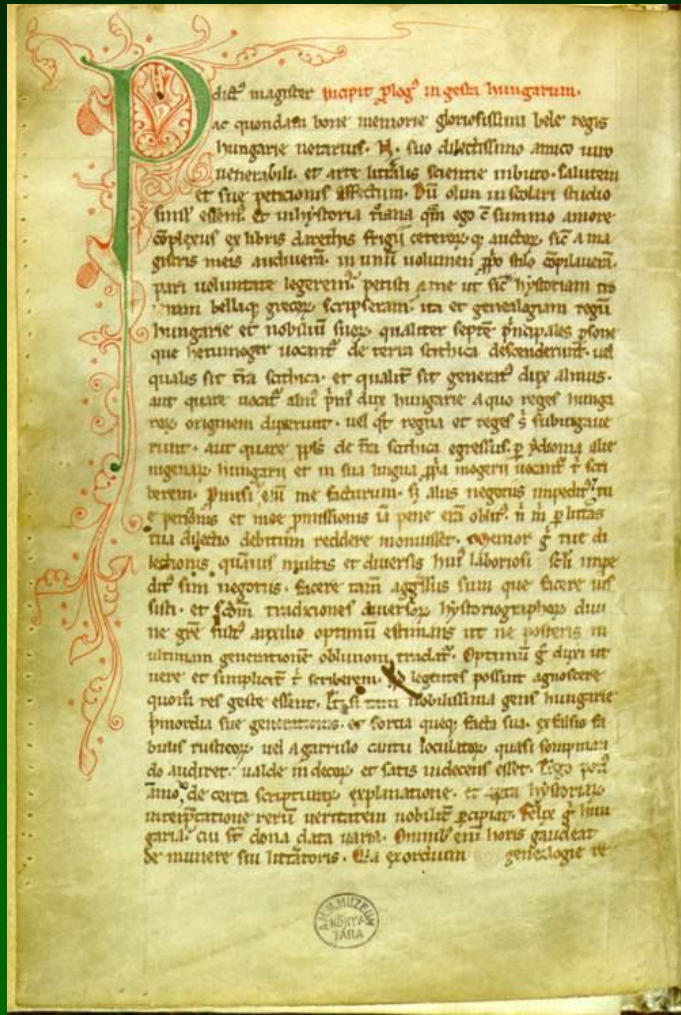 P dict᷒ magister incipit ꝓlog᷒ in gesta hungarum.
ac quondam bone memorie gloriosissimi bele regis
hungarie notarius. N. suo dilectissimo amico uiro
uenerabili. et arte litt̃alis scientie inbuto. salutem
et sue peticionis affectum. Dũ olim in scolari studio
simul essem᷒. et in hystoria t̃iana q̃m ego cũ summo amore
cõplexus ex libris darethis frigij ceteroꝝ ꝙ auctoꝝ. sic̃ a ma
gistris meis audiuerã. in unũ uolumen ꝓprio stilo cõpilauerã.
pari uoluntate legerem᷒. petisti a me ut sic̃ hystoriam tro
ianam bellaꝙ grecoꝝ scripseram. ita et genealogiam regũ
hungarie et nobiliũ suoꝝ. qualiter septẽ p̃ncipales ꝑsone
que hetumoger uocant᷒ de terra scithica descenderunt. uel
qualis sit t̃ra scithica. et qualit̃ sit generat᷒ dux almus.
aut quare uocat᷒ alm᷒ prim᷒ dux hungarie a quo reges hunga
roꝝ originem duxerunt. uel qt̃ regna et reges s̃ subiugaue
runt. aut quare ppl̃s de t̃ra scithica egressus. ꝑ ydioma alie
nigenaꝝ hungarij et in sua lingua ꝓpria mogerij uocant᷒ t̃ scri
berem. Promisi et̃ me facturum. sꝫ aliis negotiis impedit᷒. tu
e petitionis et mee promissionis iã pene erã oblit᷒. n̄ m̃ ꝑ litt̃as
tua dilectio debitum reddere monuisset. Memor g̃ tue di
lectionis. quãuis multis et diuersis hui᷒ laboriosi sc̃li impe
dit᷒ sim negotiis. facere tam̃ aggressus sum que facere ius
sisti. et sc̃dm̃ tradiciones diuersoꝝ hystoriographoꝝ. diui
ne gr̃e fult᷒ auxilio optimũ estimans ut ne posteris in
ultimam generationẽ obliuioni tradat᷒. Optimũ g̃ duxi ut
uere et simplicit̃ t̃ scriberem. quod legentes possint agnoscere
quom̃ res geste essent. Et si tam nobilissima gens hungarie
primordia sue generationis. et fortia queꝗ facta sua. ex falsis fa
bulis rusticoꝝ. uel a garrulo cantu ioculatoꝝ. quasi sompnian
do audiret. ualde indecoꝝ et satis indecens esset. Ergo poti᷒
ãmo. de certa scripturaꝝ explanatione. et aperta hystoriaꝝ
interp̃tatione rerũ ueritatem nobilit̃ ꝑcipiat. Felix g̃ hun
garia. cui s̃t dona data uaria. Omnib᷒ eñi horis gaudeat
de munere sui litt̃atoris. Quia exordium genealogie re
A.M.N.MUZEUM
KÖNYV
TÁRA